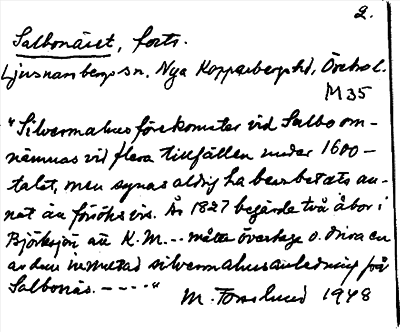 2.
Salbonäset, forts.
Ljusnarsbergs sn. Nya Kopparbergs hd, Örebro l.
M 35
"Silvermalmsförekomster vid Salbo om-
nämnas vid flera tillfällen under 1600-
talet, men synas aldrig ha bearbetats an-
nat än försöksvis. År 1827 begärde två åbor i
Björksjön att K. M... måtte överlaga o. driva en
av dem inmutad silvermalmsanledning på
Salbonäs. - - - - "
M. 1948